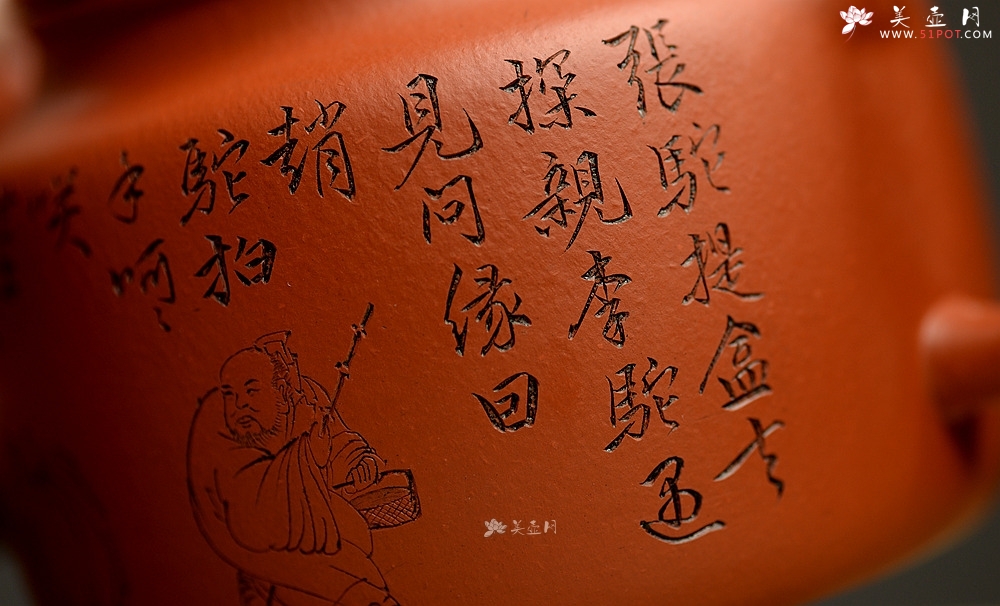 張駝提盒去
探親李駝遇
見問緣曰
趙
駝拍
手呵〻
笑
美壶网
WWW.51POT.COM
美壶网